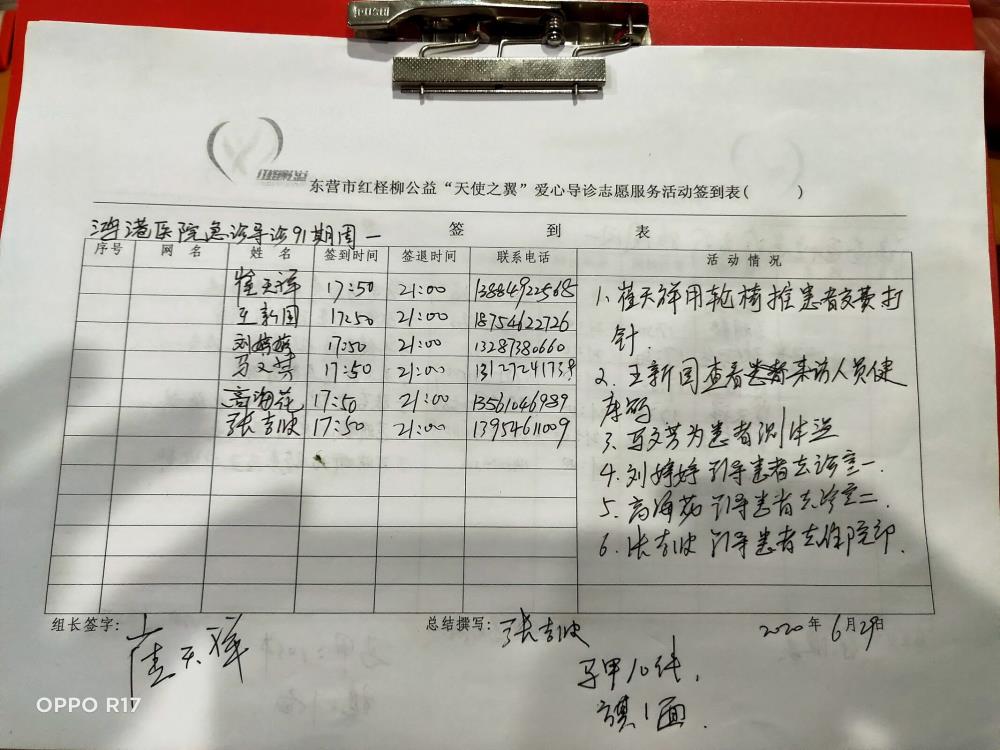 东营市红柽柳公益“天使之翼”爱心导诊志愿服务活动签到表( )
签 到 表
鸿港医院急诊导诊91期周一
序号 网 名 姓 名 签到时间 签退时间 联系电话 活动情况
崔天祥 17:50 21:00 13884922568
王新国 17:50 21:00 18754622726
刘婷婷 17:50 21:00 13287380660
马文芳 17:50 21:00
高海花 17:50 21:00 13561046989
张吉波 17:50 21:00 13954611009
1、崔天祥用轮椅推患者交费打
针.
2、王新国查看来访人员健
康码
3、马文芳为患者测体温
4、刘婷婷引导患者去诊室一.
5、高海花引导患者去诊室二.
6、张吉波引导患者去住院部.
组长签字: 崔天祥
总结撰写: 张吉波
2020年6月29日
马甲10件,
旗1面.
OPPO R17